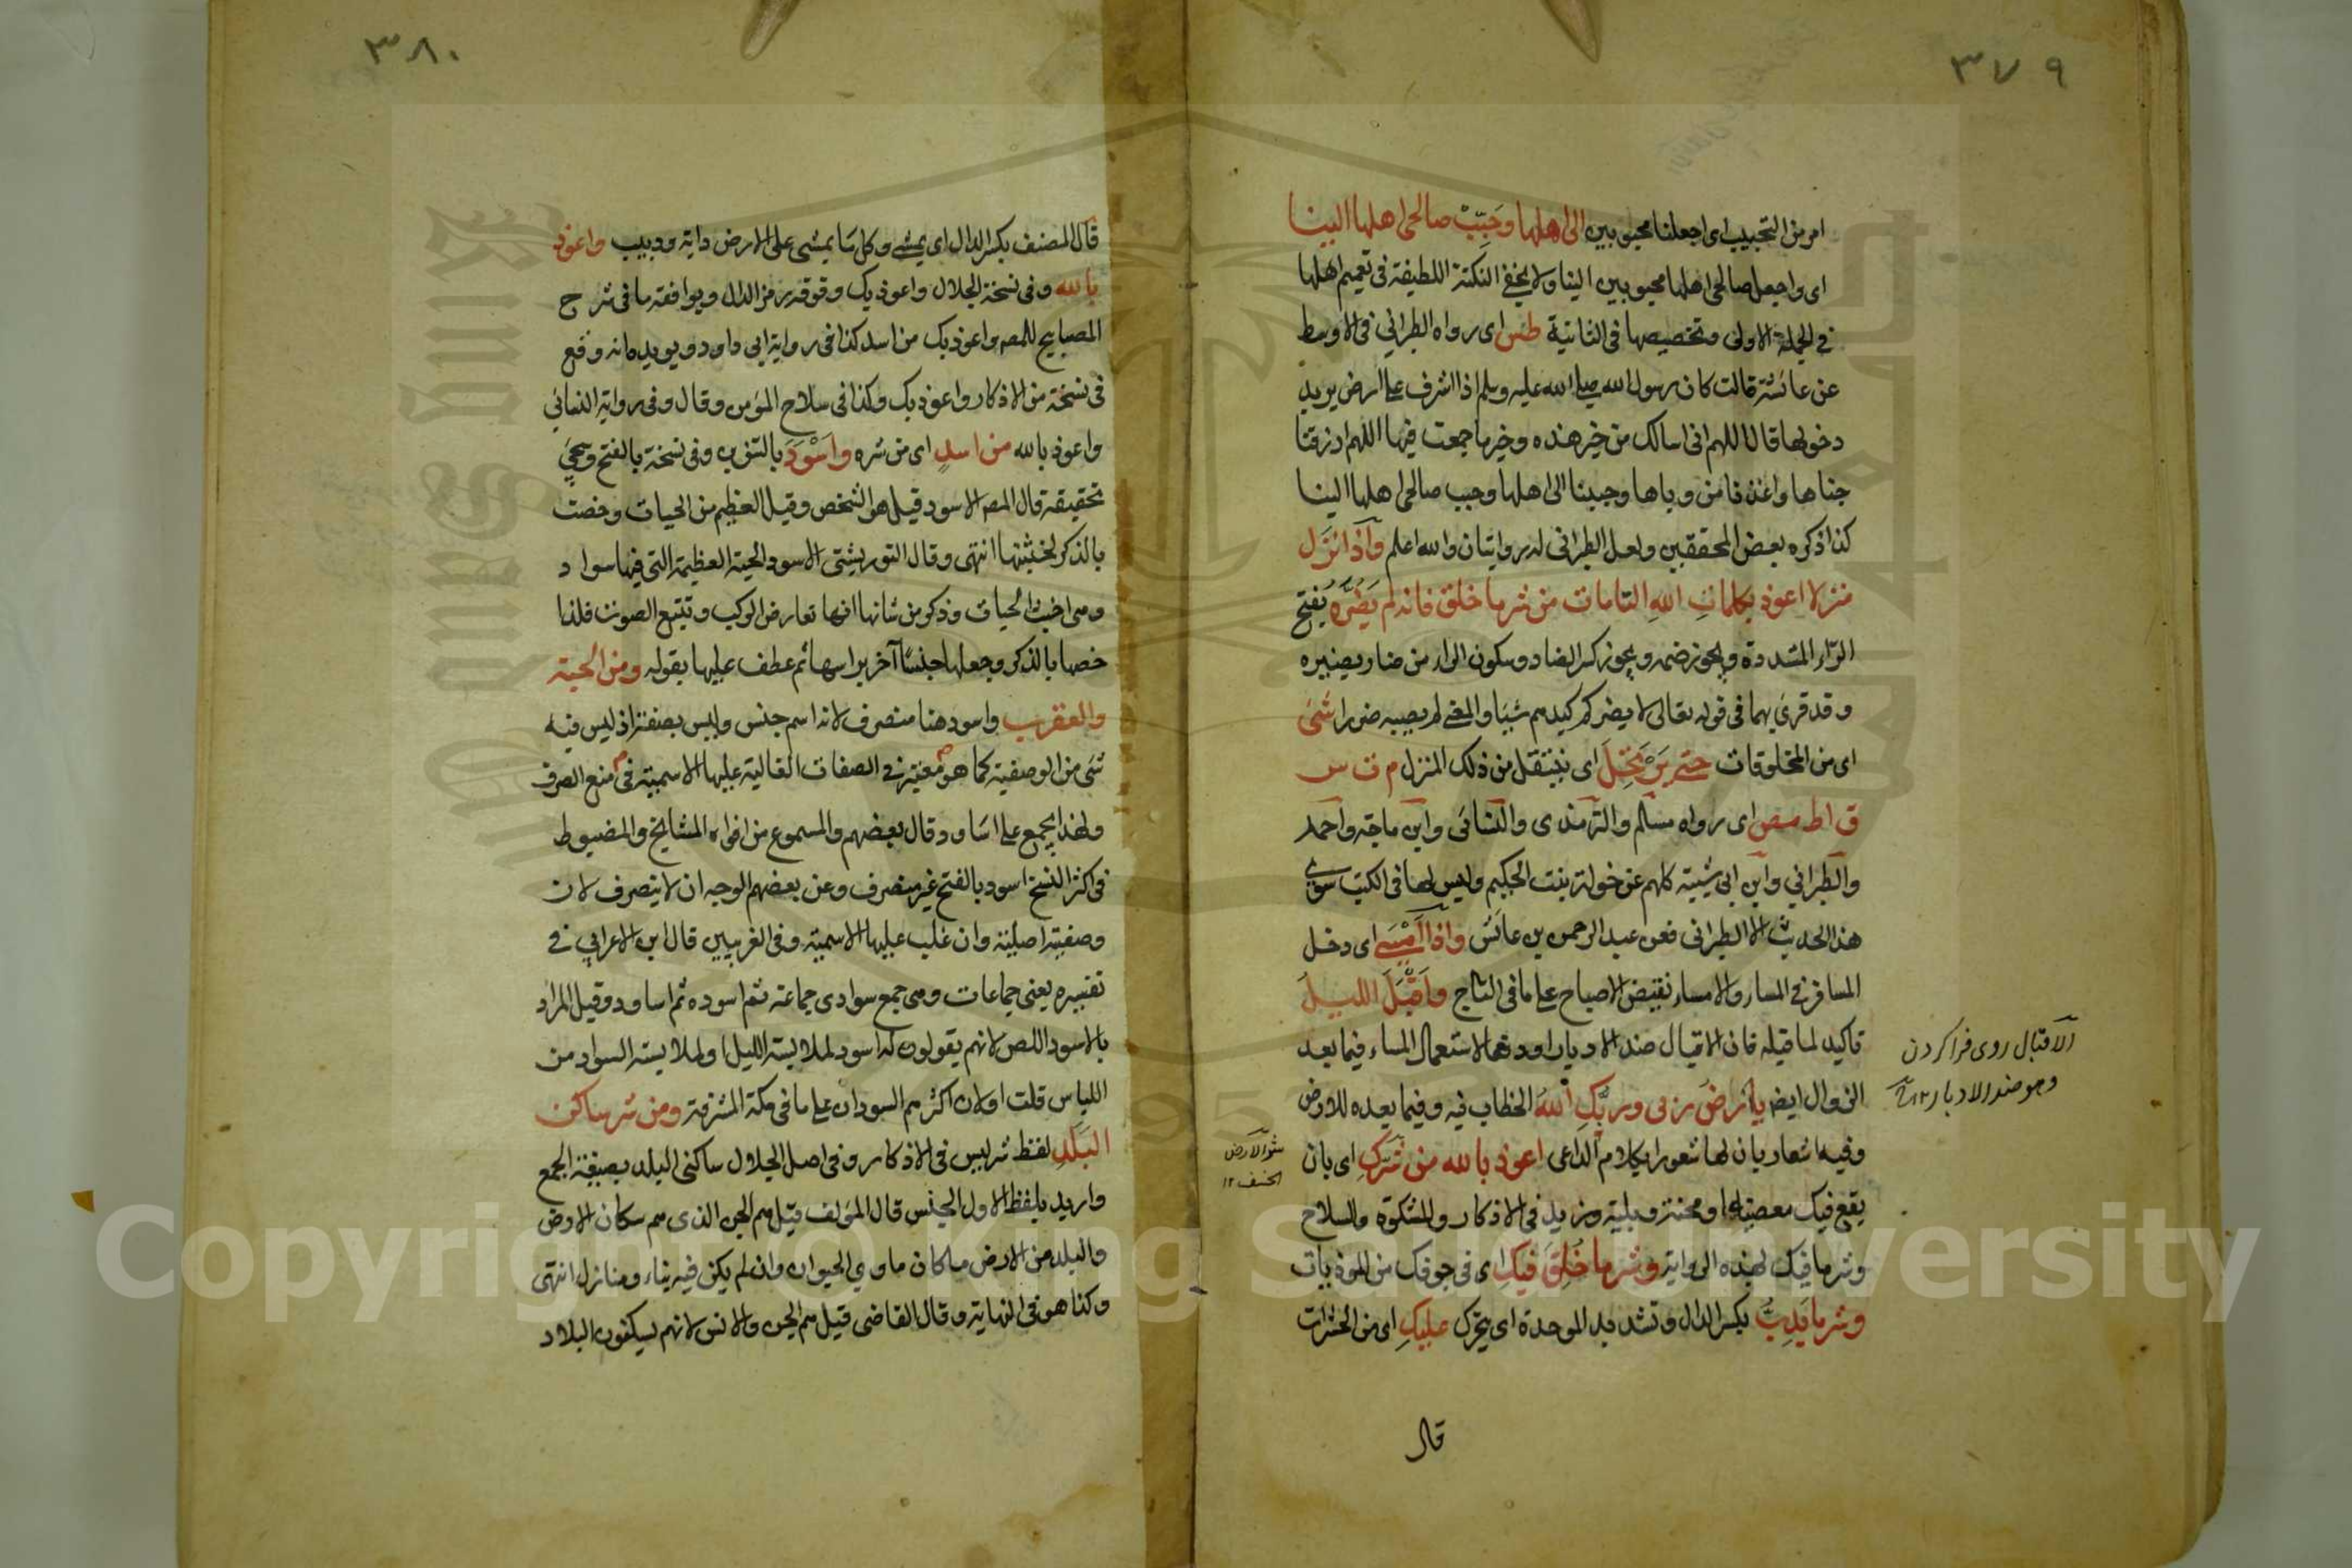 ٣٧٩
امر من التحبيب اى اجعلنا محبوبين الى اهلها وحَبِّبْ صالحى اهلها الينا
اى واجعل صالحى اهلها محبوبين الينا ولا يخفى النكتة اللطيفة فى تعميم اهلها
فى الجملة الاولى وتخصيصها فى الثانية طس اى رواه الطبرانى فى الاوسط
عن عائشة قالت كان رسول الله صلى الله عليه وسلم اذا اشرف على ارض يريد
دخولها قال اللهم انى اسالك من خير هذه وخير ما جمعت فيها اللهم ارزقنا
جناها واعذنا من وباها وحببنا الى اهلها وحبب صالحى اهلها الينا
كذا ذكره بعض المحققين ولعل الطبرانى له روايتان والله اعلم واذا نزل
منزلا اعوذ بكلمات الله التامات من شر ما خلق فانه لم يَضُرَّه بفتح
الراء المشددة ويجوز ضمه ويجوز كسر الضاد وسكون الراء من ضار يضيره
وقد قرئ بهما فى قوله تعالى لا يضركم كيدهم شيئا والمعنى لم يصيبه ضررا شئ
اى من المخلوقات حتى يَرْتَحِلَ اى ينتقل من ذلك المنزل م ت س
ق ا ط مص اى رواه مسلم والترمذى والنسائى وابن ماجة واحمد
والطبرانى وابن ابى شيبة كلهم عن خولة بنت الحكيم وليس لها فى الكتب سوى
هذا الحديث الا الطبرانى فعن عبد الرحمن بن عائش واذا اَمْسَى اى دخل
المسافر فى المساء والامساء نقيض الاصباح على ما فى التاج واَقْبَلَ الليلُ
تاكيد لما قبله فان الاقبال ضد الادبار او دفعا لاستعمال المساء فيما بعد
الزوال ايضا يا ارض ربى وربك الله الخطاب فيه وفيما بعده للارض
وفيه اشعار بان لها شعورا بكلام الداعى اعوذ بالله من شركِ اى بان
يقع فيك معصية او محنة وبلية وزيد فى الاذكار والمشكوة والسلاح
وشر ما فيك لهذه الرواية وشر ما خُلِقَ فيكِ اى فى جوفك من المؤذيات
وشر ما يَدِبُّ بكسر الدال وتشديد الموحدة اى يتحرك عليكِ اى من الحشرات
قال
الاقبال روى فرا كردن
وهو ضد الادبار ١٢
٣٨٠
قال المصنف بكسر الدال اى يمشى وكل ما يمشى على الارض دابة ودبيب واعوذ
بالله وفى نسخة الجلال واعوذ بك وفوقه رمز الدال ويوافقه ما فى شرح
المصابيح للمص واعوذ بك من اسد كذا فى رواية ابى داود ويؤيده انه وقع
فى نسخة من الاذكار واعوذ بك وكذا فى سلاح المؤمن وقال وفى رواية النسائى
واعوذ بالله من اسدٍ اى من شره واَسْوَدَ بالتنوين وفى نسخة بالفتح وسيجئ
تحقيقه قال المص الاسود قيل هو الشخص وقيل العظيم من الحيات وخصت
بالذكر لخبثها انتهى وقال التوربشتى الاسود الحية العظيمة التى فيها سواد
وهى اخبث الحيات وذكر من شانها انها تعارض الركب وتتبع الصوت فلذا
خصها بالذكر وجعلها جنسا آخر براسها ثم عطف عليها بقوله ومن الحية
والعقرب واسود هنا منصرف لانه اسم جنس وليس بصفة اذ ليس فيه
شئ من الوصفية كما هو معتبر فى الصفات الغالبة عليها الاسمية فى منع الصرف
ولهذا يجمع على اساود وقال بعضهم والمسموع من افواه المشايخ والمضبوط
فى اكثر النسخ اسود بالفتح غير منصرف وعن بعضهم الوجه ان لا ينصرف لان
وصفيته اصلية وان غلب عليها الاسمية وفى الغريبين قال ابن الاعرابى فى
تفسيره يعنى جماعات وهى جمع سواد اى جماعة ثم اسودة ثم اساود وقيل المراد
بالاسود اللص لانهم يقولون له اسود لملابسته الليل او لملابسته السواد من
اللباس قلت او لان اكثرهم السودان على ما فى مكة المشرفة ومن شر ساكن
البَلَدِ لفظ شر ليس فى الاذكار وفى اصل الجلال ساكنى البلد بصيغة الجمع
واريد بلفظ الاول الجنس قال المؤلف قيل هم الجن الذى هم سكان الارض
والبلد من الارض ما كان ماوى الحيوان وان لم يكن فيه بناء ومنازل انتهى
وكذا هو فى النهاية وقال القاضى قيل هم الجن والانس لانهم يسكنون البلاد
Copyright © King Saud University